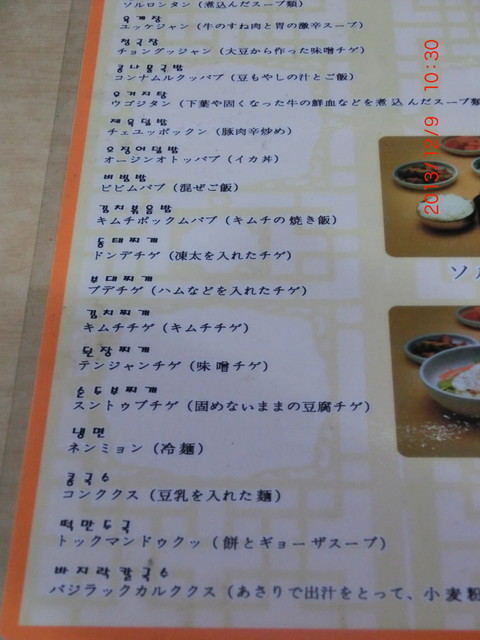 ソルロンタン（煮込んだスープ類）
육계장
ユッケジャン（牛のすね肉と胃の激辛スープ）
청국장
チョングッジャン（大豆から作った味噌チゲ）
콩나물국밥
コンナムルクッパブ（豆もやしの汁とご飯）
우거지탕
ウゴジタン（下葉や固くなった牛の鮮血などを煮込んだスープ類
제육덮밥
チェユッポックン（豚肉辛炒め）
오징어덮밥
オージンオトッパブ（イカ丼）
비빔밥
ビビムバブ（混ぜご飯）
김치볶음밥
キムチポックムバブ（キムチの焼き飯）
동태찌개
ドンデチゲ（凍太を入れたチゲ）
부대찌개
ブデチゲ（ハムなどを入れたチゲ）
김치찌개
キムチチゲ（キムチチゲ）
된장찌개
テンジャンチゲ（味噌チゲ）
순두부찌개
スントゥブチゲ（固めないままの豆腐チゲ）
냉면
ネンミョン（冷麺）
콩국수
コンククス（豆乳を入れた麺）
떡만두국
トックマンドゥクッ（餅とギョーザスープ）
바지락칼국수
バジラックカルククス（あさりで出汁をとって、小麦粉
ソル
2013/12/9 10:30